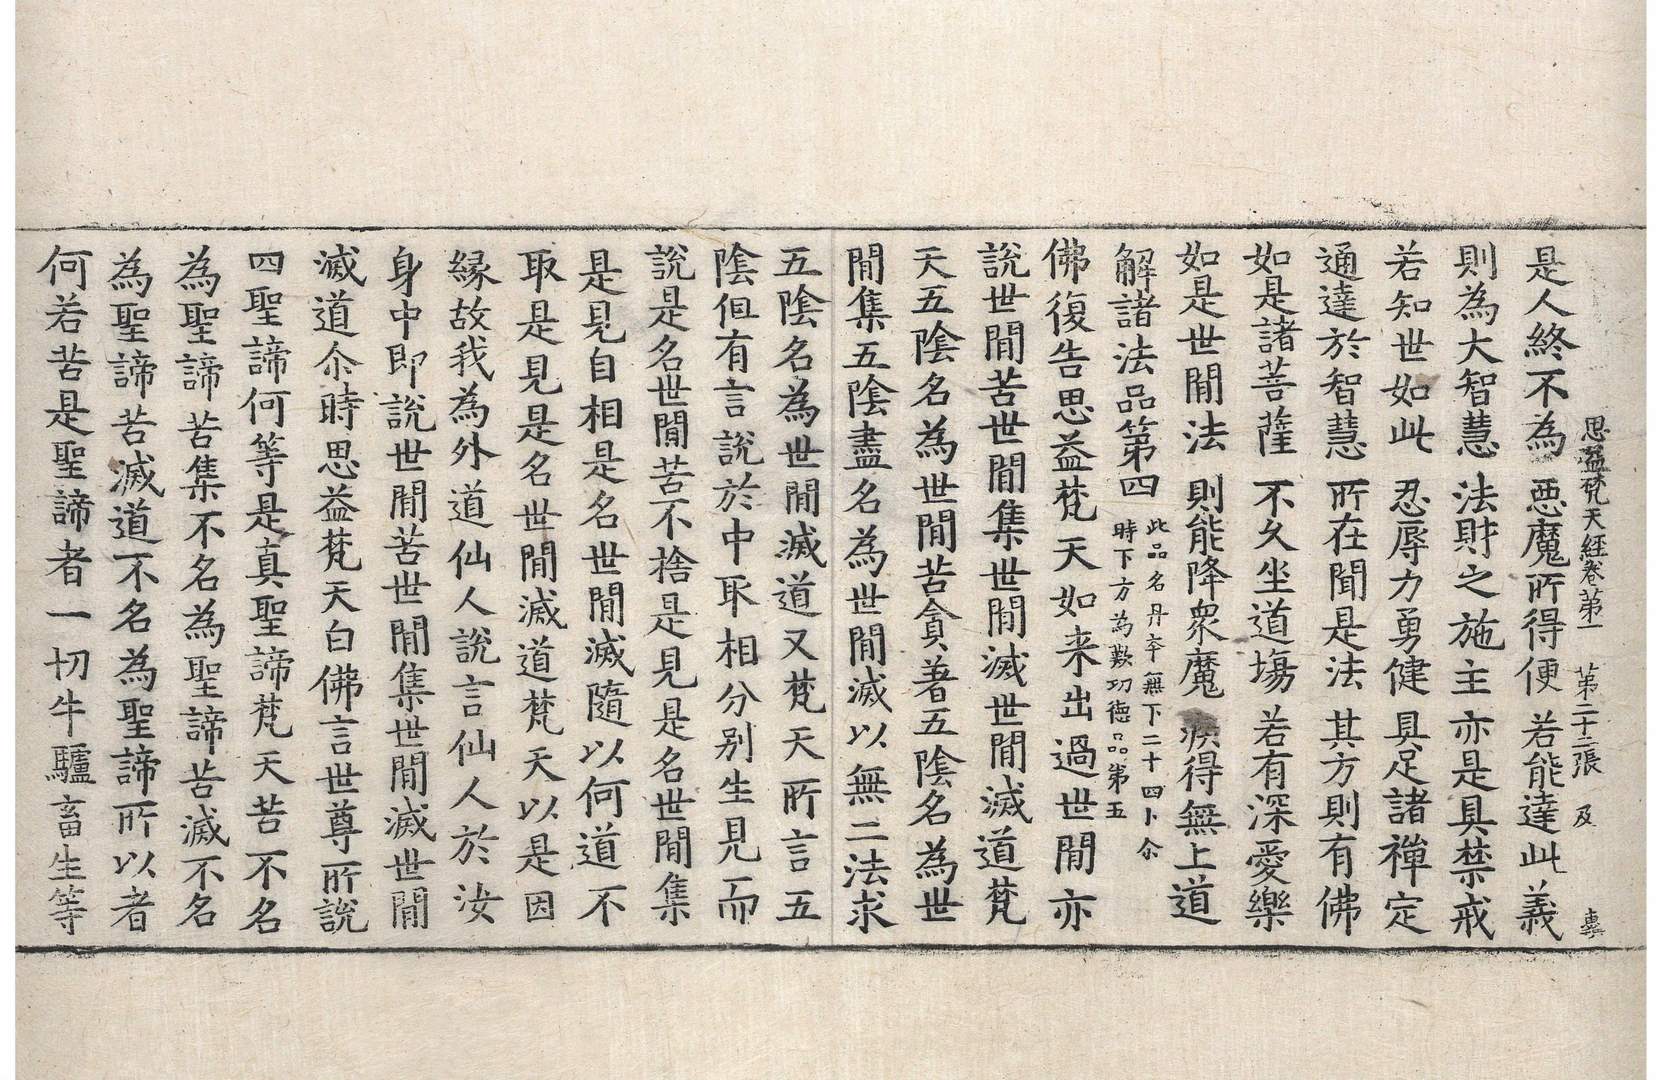 思益梵天經卷第一　第二十二張　及
是人終不為　惡魔所得便　若能達此義
則為大智慧　法財之施主　亦是具禁戒
若知世如此　忍辱力勇健　具足諸禪定
通達於智慧　所在聞是法　其方則有佛
如是諸菩薩　不久坐道場　若有深愛樂
如是世閒法　則能降衆魔　疾得無上道
解諸法品第四
此品名丹夲無下二十四卜尒
時下方為歎功德品第五
佛復告思益梵天如来出過世閒亦
說世閒苦世閒集世閒滅世閒滅道梵
天五陰名為世閒苦貪著五陰名為世
閒集五陰盡名為世閒滅以無二法求
五陰名為世閒滅道又梵天所言五
陰但有言說於中取相分別生見而
說是名世閒苦不捨是見是名世閒集
是見自相是名世閒滅隨以何道不
取是見是名世閒滅道梵天以是因
縁故我為外道仙人說言仙人於汝
身中即說世閒苦世閒集世閒滅世閒
滅道尒時思益梵天白佛言世尊所說
四聖諦何等是真聖諦梵天苦不名
為聖諦苦集不名為聖諦苦滅不名
為聖諦苦滅道不名為聖諦所以者
何若苦是聖諦者一切牛驢畜生等